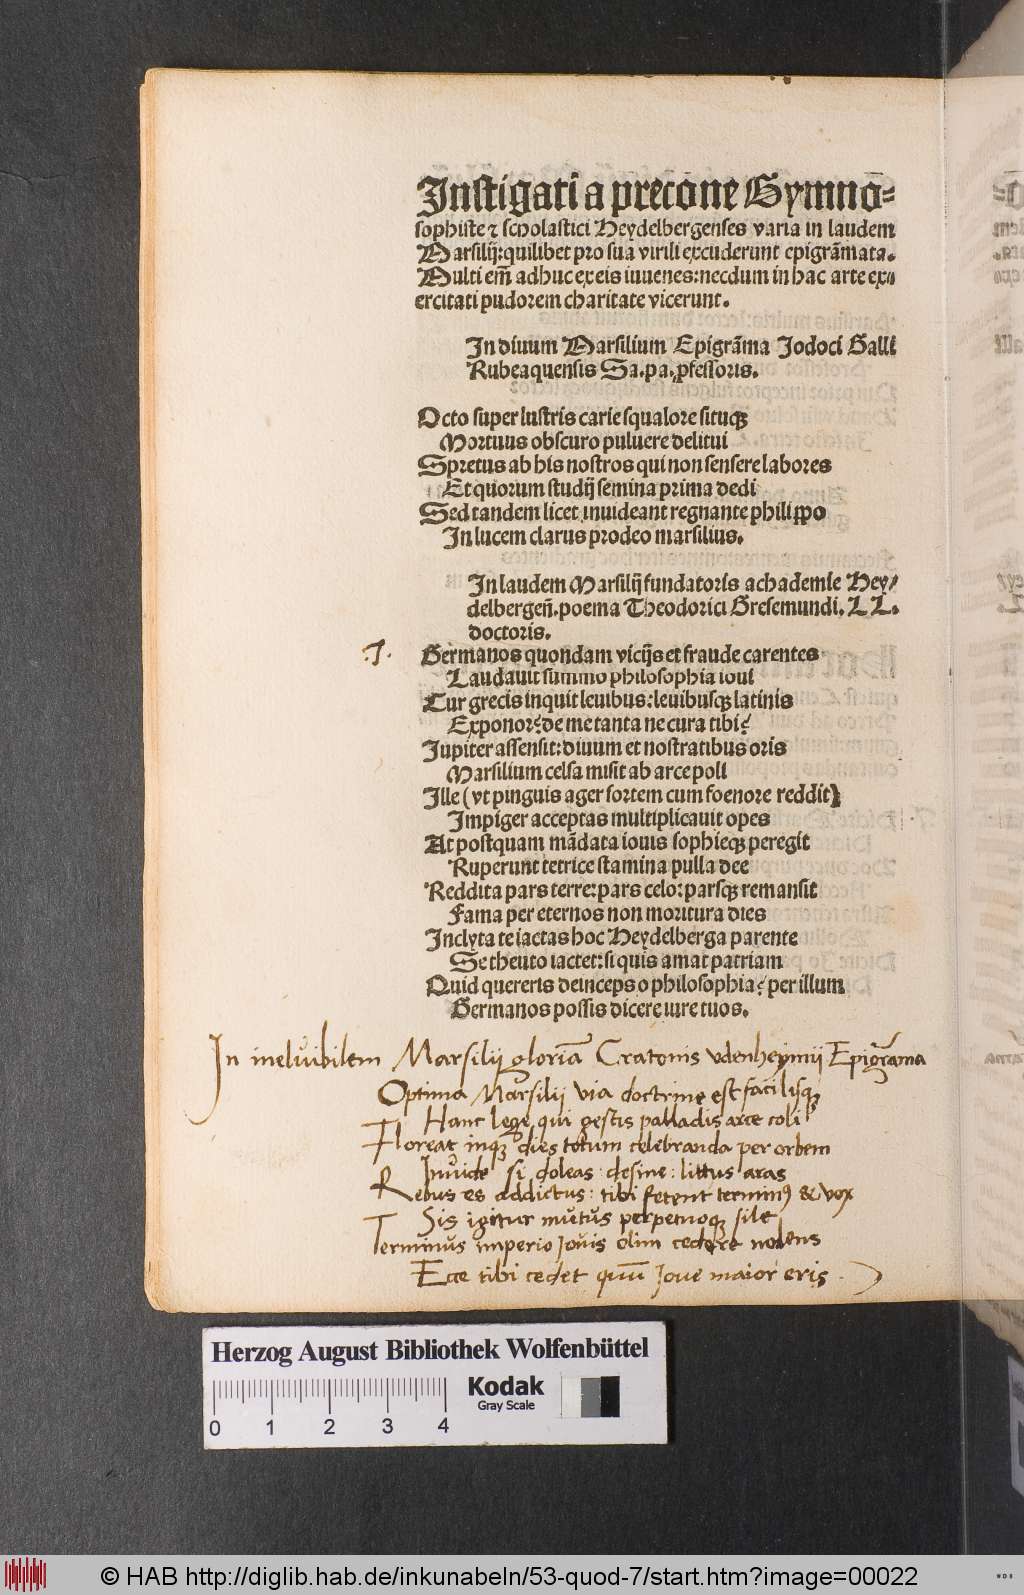 Instigati a precone Gymno-
sophiste ⁊ scholastici Heydelbergenses varia in laudem
Marsilij: quilibet pro sua virili excuderunt epigrãmata.
Multi em̃ adhuc ex eis iuuenes: necdum in hac arte ex⸗
ercitati pudorem charitate vicerunt.
In diuum Marsilium Epigrãma Jodoci Galli
Rubeaquensis Sa. pa. ꝓfessoris.
Octo super lustris carie squalore situqꝫ
Mortuus obscuro puluere delitui
Spretus ab his nostros qui non sensere labores
Et quorum studij semina prima dedi
Sed tandem licet inuideant regnante philippo
In lucem clarus prodeo marsilius.
In laudem Marsilij fundatoris achademie Hey/
delbergeñ. poema Theodorici Gresemundi. LL.
doctoris.
.J. Germanos quondam vicijs et fraude carentes
Laudauit summo philosophia ioui
Cur grecis inquit leuibus: leuibusqꝫ latinis
Exponor? de me tanta ne cura tibi?
Jupiter assensit: diuum et nostratibus oris
Marsilium celsa misit ab arce poli
Ille (vt pinguis ager sortem cum foenore reddit)
Impiger acceptas multiplicauit opes
At postquam mãdata iouis sophieqꝫ peregit
Ruperunt tetrice stamina pulla dee
Reddita pars terre: pars celo: parsqꝫ remansit
Fama per eternos non moritura dies
Inclyta te iactas hoc Heydelberga parente
Se theuto iactet: si quis amat patriam
Quid quereris deinceps o philosophia? per illum
Germanos possis dicere iure tuos.
In ineluibilem Marsilij gloriã Cratonis vdenheymij Epigrãma
Optima Marsilij via doctrine est facilisqꝫ
Hanc lege qui gestis palladis arce coli
Floreat inqꝫ dies totum celebranda per orbem
Inuide si doleas desine: littus aras
Rebus es addictus: tibi fetent terminꝰ & vox
Sis igitur mutus perpetuoqꝫ sile
Terminus imperio Jouis olim cedere nolens
Ecce tibi cedet quũ Joue maior eris.
Herzog August Bibliothek Wolfenbüttel
Kodak
Gray Scale
0 1 2 3 4
© HAB http://diglib.hab.de/inkunabeln/53-quod-7/start.htm?image=00022